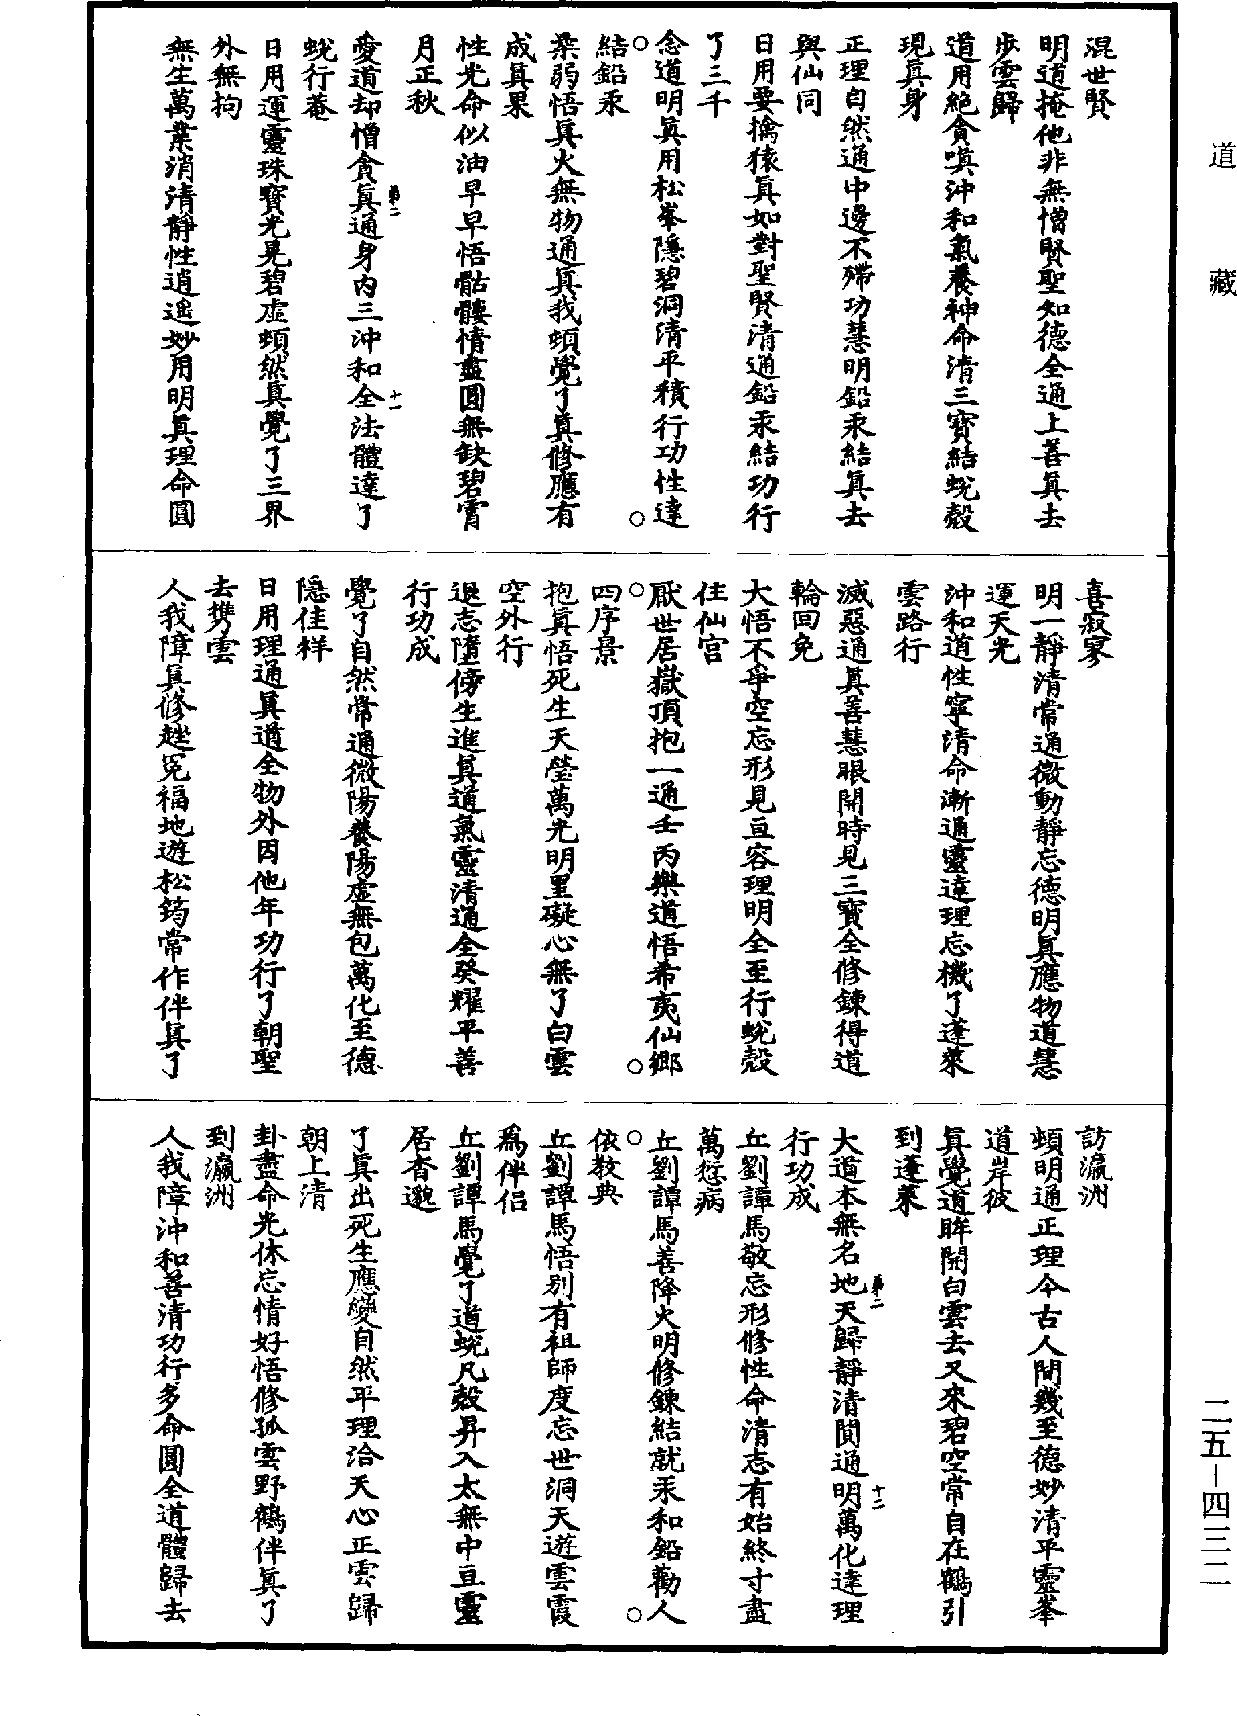 道藏
混世賢
明道掩他非無憎賢聖知德全通上善真去
步雲歸
道用絕貪嗔沖和氣養神命清三寶結蛻殼
現真身
正理自然通中邊不殢功慧明鉛汞結真去
與仙同
日用要擒猿真如對聖賢清通鉛汞結功行
了三千
念道明真用松峯隱碧洞清平積行功性達
結鉛汞
柔弱悟真火無物通真我頓覺了真修應有
成真果
性光命似油早早悟骷髏情盡圓無缺碧霄
月正秋
愛道却憎貪真通身內三沖和全法體達了
蛻行菴
第二
十一
日用運靈珠寶光晃碧虛頓然真覺了三界
外無拘
無生萬業消清靜性逍遙妙用明真理命圓
喜寂寥
明一靜清常通微動靜忘德明真應物道慧
運天光
沖和道性寧清命漸通靈達理忘機了蓬萊
雲路行
滅惡通真善慧眼開時見三寶全修鍊得道
輪回免
大悟不爭空忘形見亘容理明全至行蛻殼
住仙宮
厭世居嶽頂抱一通壬丙樂道悟希夷仙鄉
四序景
抱真悟死生天瑩萬光明罣礙心無了白雲
空外行
退志墮傍生進真道氣靈清通全癸耀平善
行功成
覺了自然常通微陽養陽虛無包萬化至德
隱佳祥
日用理通真道全物外因他年功行了朝聖
去携雲
人我障真修趖冤福地遊松筠常作伴真了
訪瀛洲
頓明通正理今古人間幾至德妙清平靈峯
道岸彼
真覺道眸開白雲去又來碧空常自在鶴引
到蓬萊
大道本無名地天歸靜清聞通明萬化達理
行功成
第二
十二
丘劉譚馬敬忘形修性命清志有始終寸盡
萬愆病
丘劉譚馬善降火明修鍊結就汞和鉛勸人
依教典
丘劉譚馬悟別有祖師度忘世洞天遊雲霞
為伴侶
丘劉譚馬覺了道蛻凡殼昇入太無中亘靈
居杳邈
了真出死生應變自然平理洽天心正雲歸
朝上清
卦盡命光休忘情好悟修孤雲野鶴伴真了
到瀛洲
人我障沖和善清功行多命圓全道體歸去
二五－四三二